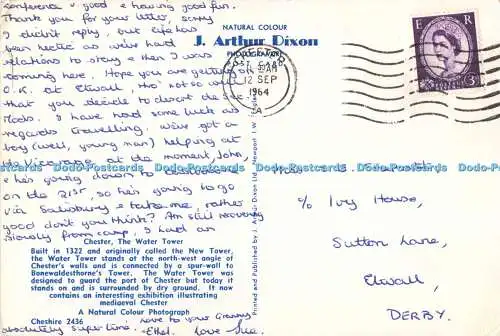 conference & good & having good fun.
Thank you for your letter, sorry
I didn't reply, but life has
been hectic as we've had
relations to stay & then I was
coming here. Hope you are getting on
O.K. at Etwall, tho' not so well
that you decide to desert the Sec.
Mods. I have had some luck as
regards travelling. We've got a
boy (well, young man) helping at
the Vicarage at the moment, John,
& he's going down to
on the 21st, so he's going to go
via Salisbury & take me, rather
good don't you think? Am still recovering
slowly from camp, I had an
absolutely super time. love to your Granny
& Ethel. love Sue.
NATURAL COLOUR
J. Arthur Dixon
PHOTOGRAVURE
POST CARD
12 SEP
1964
A
E R
3D
c/o Ivy House,
Sutton Lane,
Etwall,
DERBY.
Chester, The Water Tower
Built in 1322 and originally called the New Tower,
the Water Tower stands at the north-west angle of
Chester's walls and is connected by a spur-wall to
Bonewaldesthorne's Tower. The Water Tower was
designed to guard the port of Chester but today it
stands on and is surrounded by dry ground. It now
contains an interesting exhibition illustrating
mediaeval Chester
A Natural Colour Photograph
Cheshire 2436
Printed and Published by J. Arthur Dixon Ltd., Newport I.W., England
Dodo-Postcards Dodo-Postcards Dodo-Postcards Dodo-Postcards Dodo-Postcards